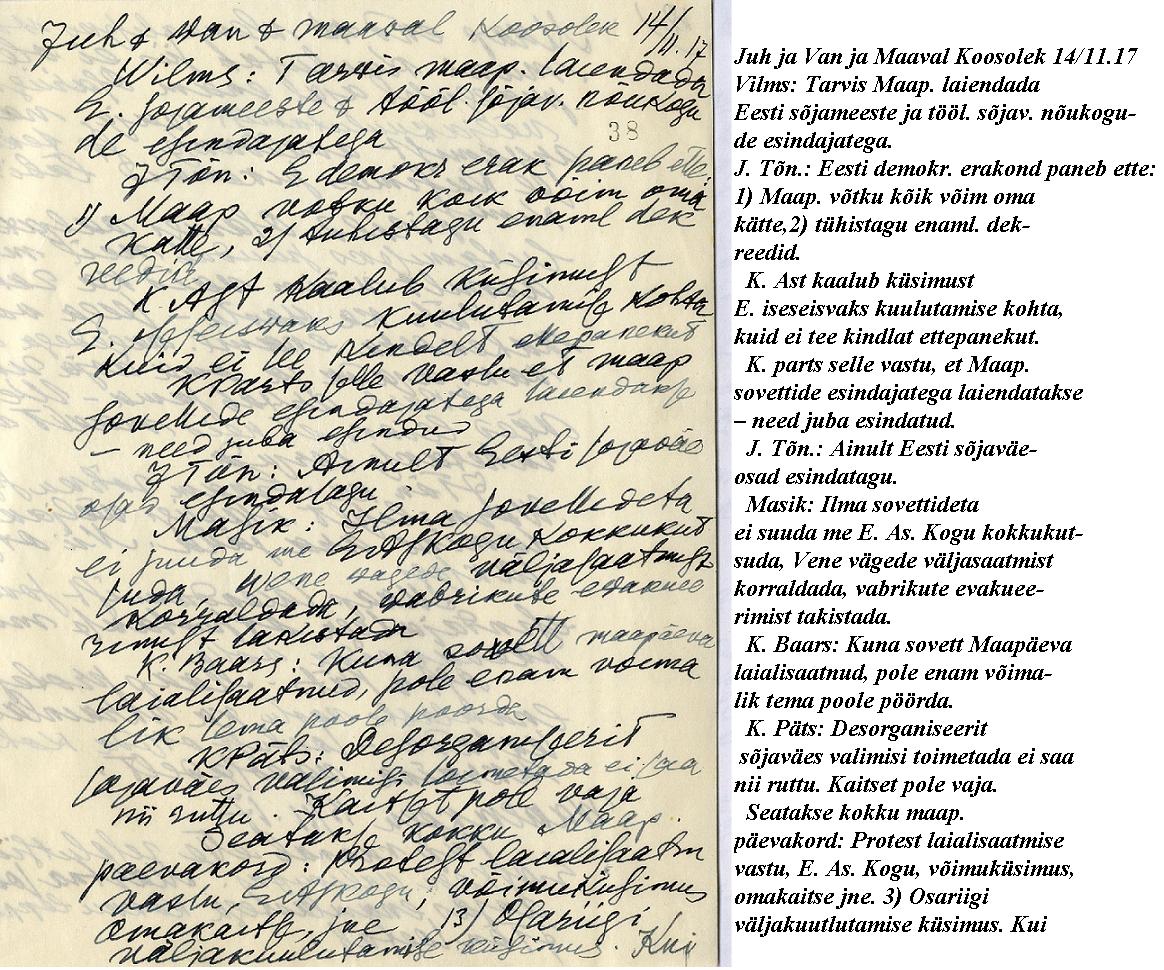 Juh & Van & maaval Koosolek 14/11.17
Wilms: Tarvis maap. laiendada
E. sojameeste & tööl. sõjav. nõukogu
de esindajatega
38
J Tõn: E demokr erak paneb ette:
1) Maap votku koik voim oma
katte, 2) tuhistagu enaml dek
reedid
K. Ast kaalub küsimust
E. iseseisvaks kuulutamise kohta
kuid ei tee kindelt ettepanekut
K Parts selle vastu et maap
sovettide esindajatega laiendakse
– need juba esindud
J Tõn: Ainult Eesti sojaväe
osas esindatagu
Masik: Ilma sovettideta
ei suuda me E As Kogu kokkukut
suda, Wene vagede väljasaatmist
korraldada, vabrikute evakuee
rimist takistada
K. Baars: Kuna sovett maapäeva
laialisaatnud, pole enam voima
lik tema poole poorda
K Päts: Desorganiseerit
sojaväes valimisi toimetada ei saa
nii ruttu. Kaitset pole vaja
Seatakse kokku Maap.
päevakord: Protest laialisaatm
vastu, E As Kogu, võimuküsimus
omakaitse, jne 3) Osariigi
väljakuulutamise küsimus. Kui
Juh ja Van ja Maaval Koosolek 14/11.17
Vilms: Tarvis Maap. laiendada
Eesti sõjameeste ja tööl. sõjav. nõukogu-
de esindajatega.
J. Tõn.: Eesti demokr. erakond paneb ette:
1) Maap. võtku kõik võim oma
kätte,2) tühistagu enaml. dek-
reedid.
K. Ast kaalub küsimust
E. iseseisvaks kuulutamise kohta,
kuid ei tee kindlat ettepanekut.
K. parts selle vastu, et Maap.
sovettide esindajatega laiendatakse
– need juba esindatud.
J. Tõn.: Ainult Eesti sõjaväe-
osad esindatagu.
Masik: Ilma sovettideta
ei suuda me E. As. Kogu kokkukut-
suda, Vene vägede väljasaatmist
korraldada, vabrikute evakuee-
rimist takistada.
K. Baars: Kuna sovett Maapäeva
laialisaatnud, pole enam võima-
lik tema poole pöörda.
K. Päts: Desorganiseerit
sõjaväes valimisi toimetada ei saa
nii ruttu. Kaitset pole vaja.
Seatakse kokku maap.
päevakord: Protest laialisaatmise
vastu, E. As. Kogu, võimuküsimus,
omakaitse jne. 3) Osariigi
väljakuutlutamise küsimus. Kui